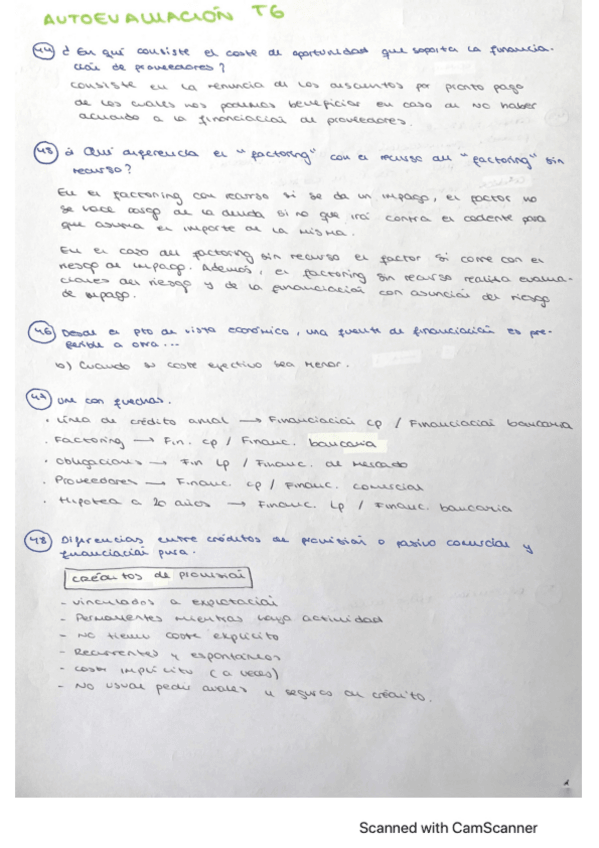 AUTOEVALUACIÓN T6
44 ¿En qué consiste el coste de oportunidad que soporta la financia-
ción de proveedores?
Consiste en la renuncia de los descuentos por pronto pago
de los cuales nos podemos beneficiar en caso de NO haber
acudido a la financiación de proveedores.
45 ¿Qué diferencia el "factoring" con el recurso del "factoring" sin
recurso?
En el factoring con recurso si se da un impago, el factor no
se hace cargo de la deuda si no que irá contra el cedente para
que asuma el importe de la misma.
En el caso del factoring sin recurso el factor si corre con el
riesgo de impago. Además, el factoring sin recurso realiza evalua-
ciones del riesgo y de la financiación con asunción del riesgo
de impago.
46 Desde el pto de vista económico, una fuente de financiación es pre-
ferible a otra...
b) Cuando su coste efectivo sea menor.
Une con flechas.
· Línea de crédito anual → Financiación cp / Financiación bancaria
· Factoring → Fin. cp / Financ. bancaria
· Obligaciones → Fin lp / Financ. de mercado
· Proveedores → Financ. cp / Financ. comercial
· Hipoteca a 20 años → Financ. lp / Financ. bancaria
48 Diferencias entre créditos de provisión o pasivo comercial y
financiación pura.
créditos de provisión
- vinculados a explotación
- Permanentes mientras haya actividad
- No tienen coste explícito
- Recurrentes y espontáneos
- coste implícito (a veces)
- No usual pedir avales y seguros de crédito.
Scanned with CamScanner